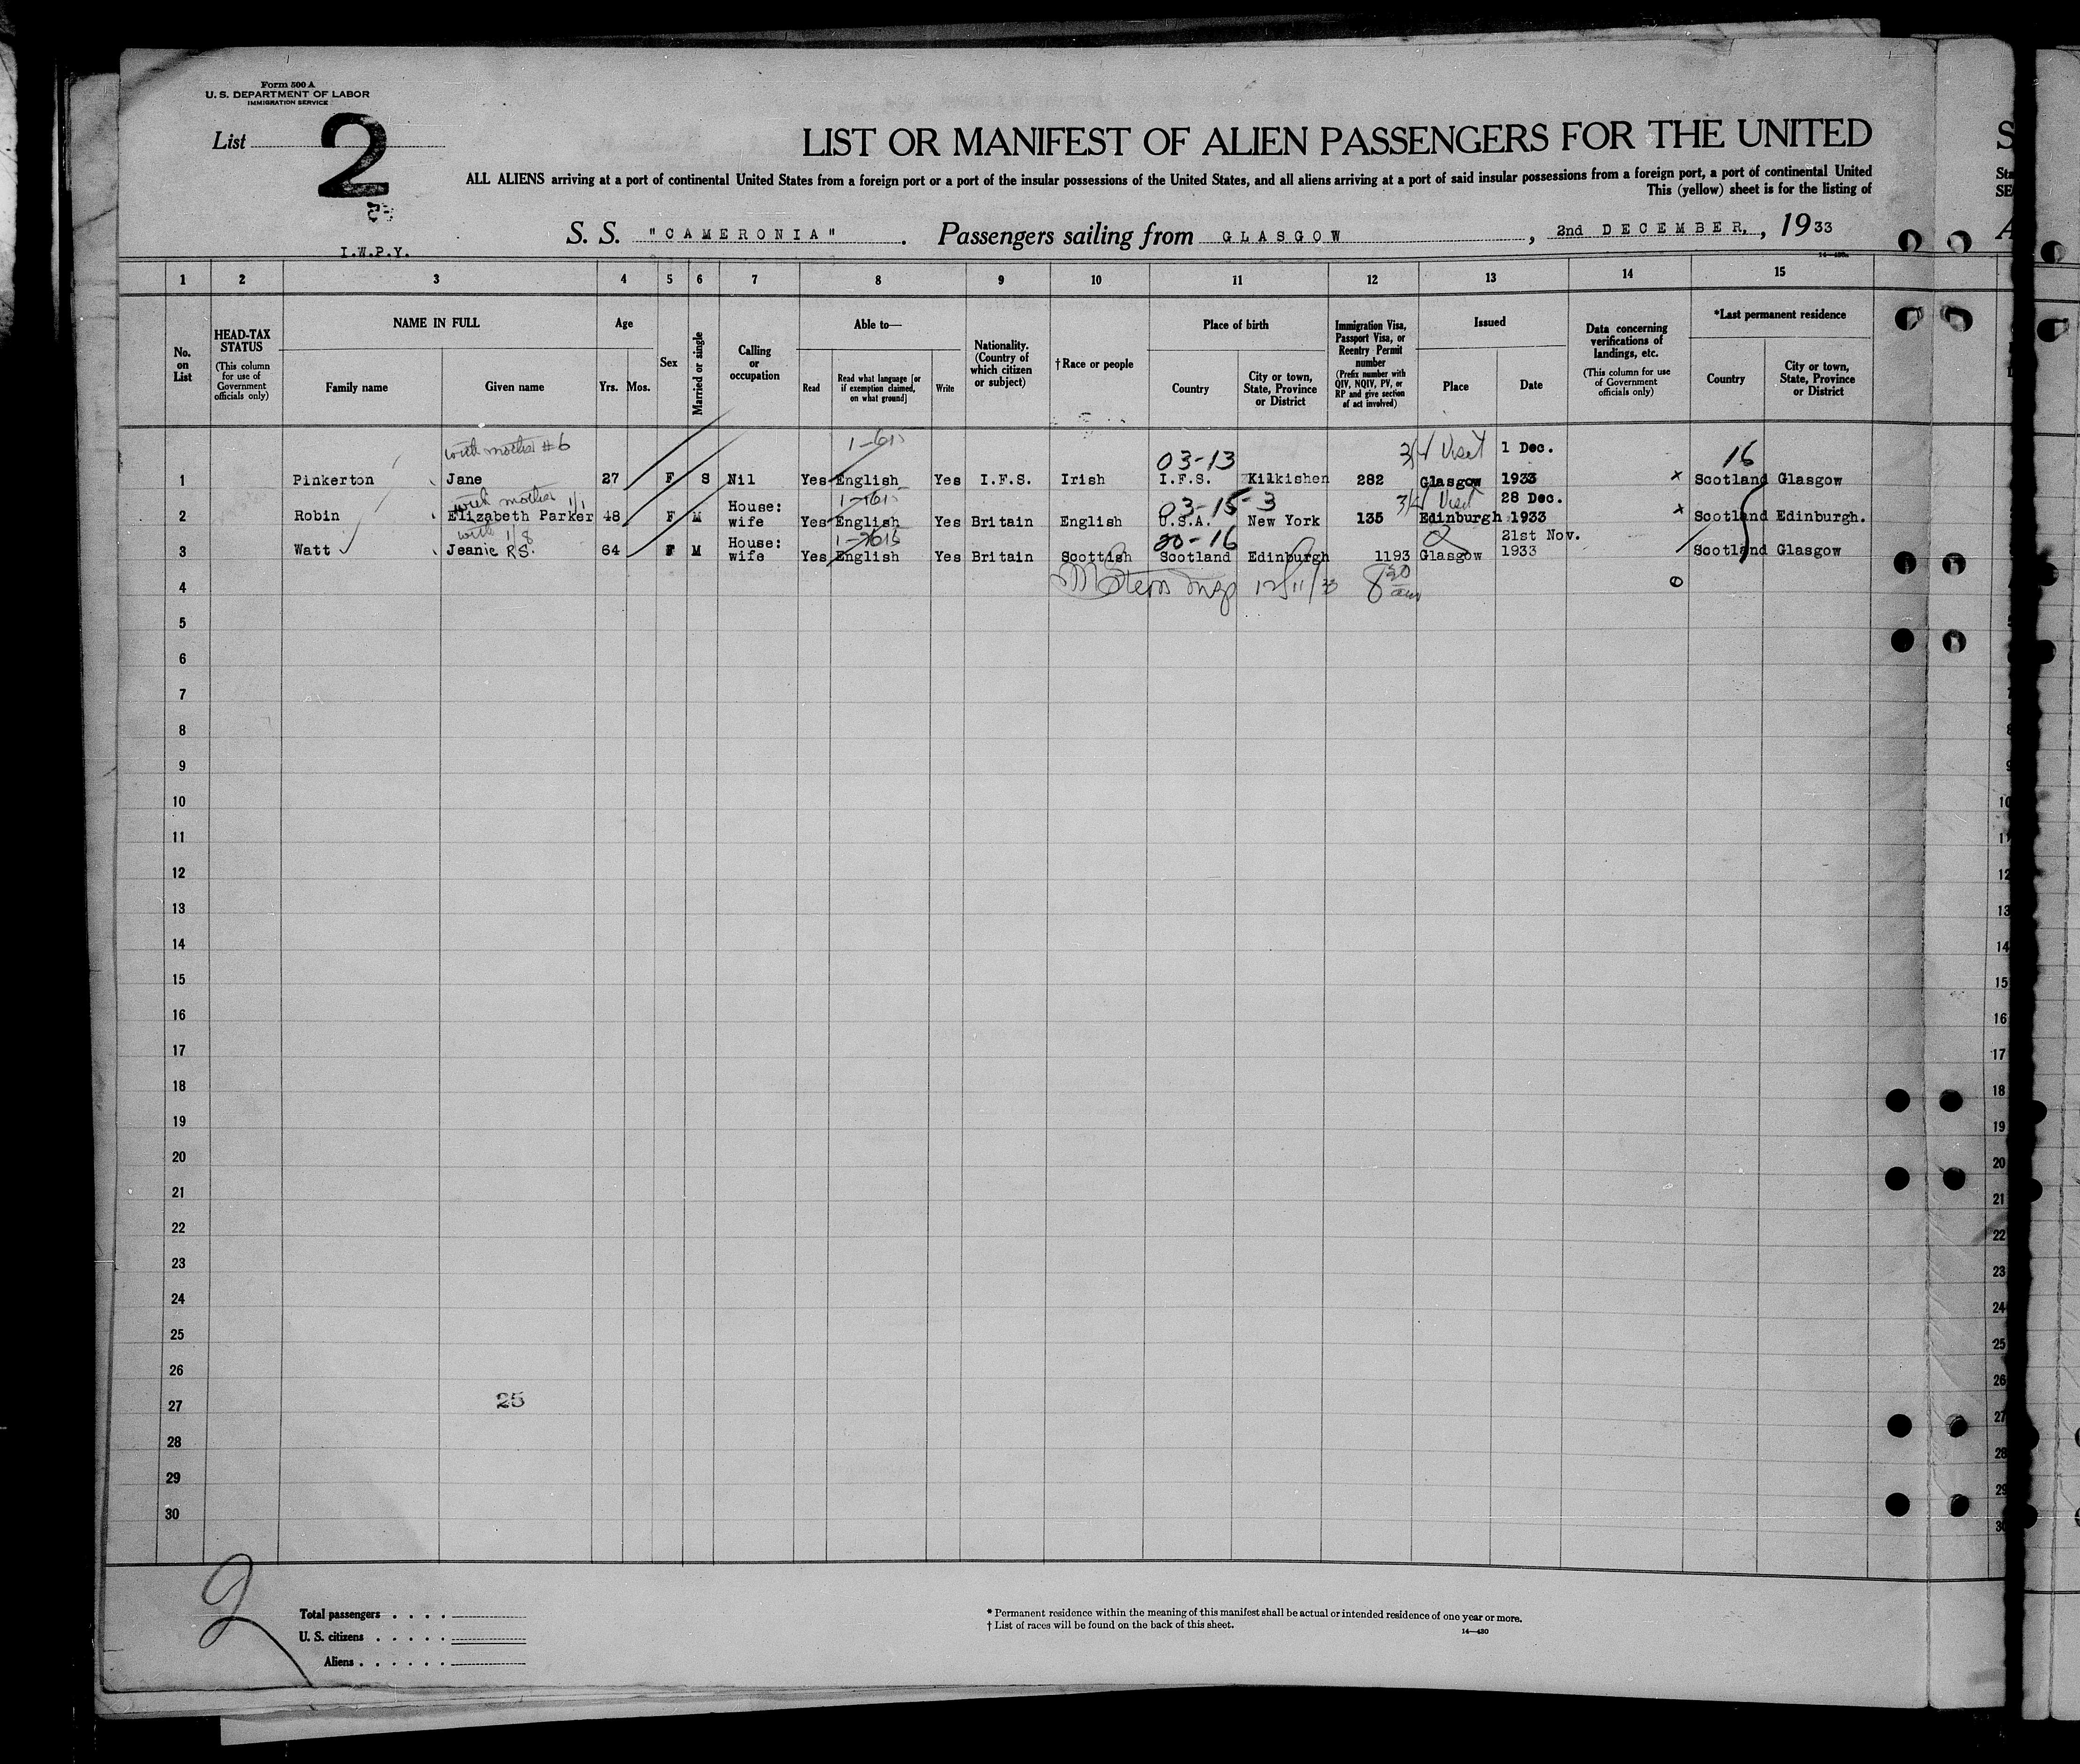 Form 500 A
U. S. DEPARTMENT OF LABOR
IMMIGRATION SERVICE
List 2
LIST OR MANIFEST OF ALIEN PASSENGERS FOR THE UNITED
ALL ALIENS arriving at a port of continental United States from a foreign port or a port of the insular possessions of the United States, and all aliens arriving at a port of said insular possessions from a foreign port, a port of continental United
This (yellow) sheet is for the listing of
S. S. "CAMERONIA" . Passengers sailing from GLASGOW , 2nd DECEMBER, , 1933
I.W.P.Y.
1 2 3 4 5 6 7 8 9 10 11 12 13 14 15
No. on List
HEAD-TAX STATUS
(This column for use of Government officials only)
NAME IN FULL
Family name Given name
Age
Yrs. Mos.
Sex
Married or single
Calling or occupation
Able to—
Read Read what language [or if exemption claimed, on what ground] Write
Nationality. (Country of which citizen or subject)
† Race or people
Place of birth
Country City or town, State, Province or District
Immigration Visa, Passport Visa, or Reentry Permit number
(Prefix number with QIV, NQIV, PV, or RP and give section of act involved)
Issued
Place Date
Data concerning verifications of landings, etc.
(This column for use of Government officials only)
*Last permanent residence
Country City or town, State, Province or District
with mother #6 03-13 3/4 Visit 1 Dec. 16
1 Pinkerton Jane 27 F S Nil Yes English Yes I.F.S. Irish I.F.S. Kilkishen 282 Glasgow 1933 x Scotland Glasgow
with mother 1/1 House: 03-15-3 3/4 Visit 28 Dec.
2 Robin Elizabeth Parker 48 F M wife Yes English Yes Britain English U.S.A. New York 135 Edinburgh 1933 x Scotland Edinburgh.
with 1/8 House: 20-16 21st Nov.
3 Watt Jeanie R.S. 64 F M wife Yes English Yes Britain Scottish Scotland Edinburgh 1193 Glasgow 1933 Scotland Glasgow
4 12/11/33 8 30 am 0
5
6
7
8
9
10
11
12
13
14
15
16
17
18
19
20
21
22
23
24
25
26
27 25
28
29
30
2
Total passengers
U. S. citizens
Aliens
* Permanent residence within the meaning of this manifest shall be actual or intended residence of one year or more.
† List of races will be found on the back of this sheet.
14—430